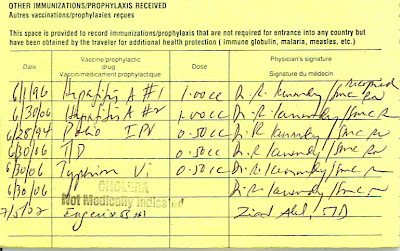 OTHER IMMUNIZATIONS/PROPHYLAXIS RECEIVED
Autres vaccinations/prophylaxies reçues
This space is provided to record immunizations/prophylaxis that are not required for entrance into any country but
have been obtained by the traveler for additional health protection ( immune globulin, malaria, measles, etc.)
Date Vaccine prophylactic drug Vaccin/medicament prophylactique Dose Physician's signature Signature du médecin
6/1/96 Hepatitis A #1 1.00cc Dr. R. Kennedy/
6/30/06 Hepatitis A #2 1.00cc Dr. R. Kennedy/
6/28/94 Polio IPV 0.50cc Dr. R. Kennedy/
6/30/06 TD 0.50cc Dr. R. Kennedy/
6/30/06 Typhim Vi 0.50cc Dr. R. Kennedy/
6/30/06 CHOLERA Dr. R. Kennedy/
Not Medically Indicated